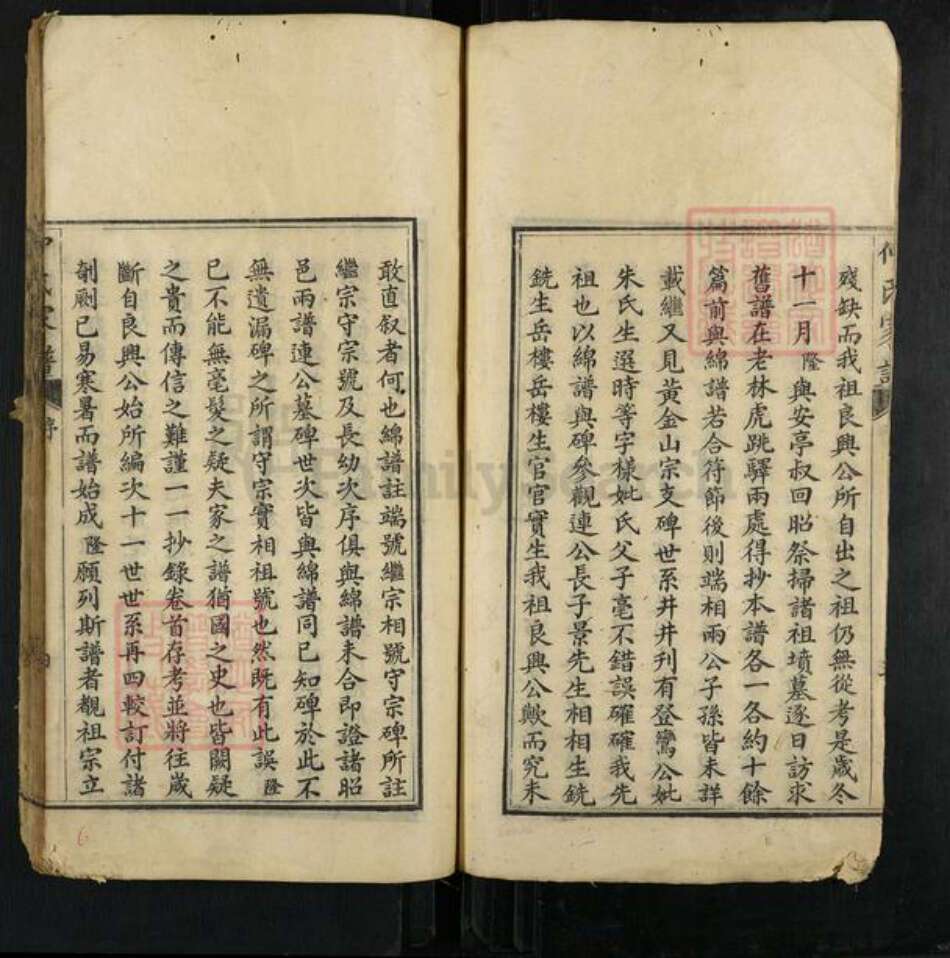 殘缺而我祖良興公所自出之祖仍無從考是歲冬
十一月隆與安亭叔回昭祭掃諸祖墳墓逐日訪求
舊譜在老林虎跳驛兩處得抄本譜各一各約十餘
篇前與綿譜若合符節後則端相兩公子孫皆未詳
載繼又見黃金山宗支碑世系井井刋有登鸞公妣
朱氏生選時等字樣妣氏父子毫不錯誤確確我先
祖也以綿譜與碑參觀連公長子景先生相相生銑
銑生岳樓岳樓生官官實生我祖良興公歟而究未
敢直叙者何也綿譜註端號繼宗相號守宗碑所註
繼宗守宗號及長幼次序俱與綿譜未合即證諸昭
邑兩譜連公墓碑世次皆與綿譜同已知碑於此不
無遺漏碑之所謂守宗實相祖號也然既有此誤隆
已不能無毫髮之疑夫家之譜猶國之史也皆闕疑
之貴而傳信之難謹一一抄錄卷首存考並將往歲
斷自良興公始所編次十一世世系再四較訂付諸
剞劂已易寒暑而譜始成隆願列斯譜者覩祖宗立
氏家譜
序
FamilySearch
6